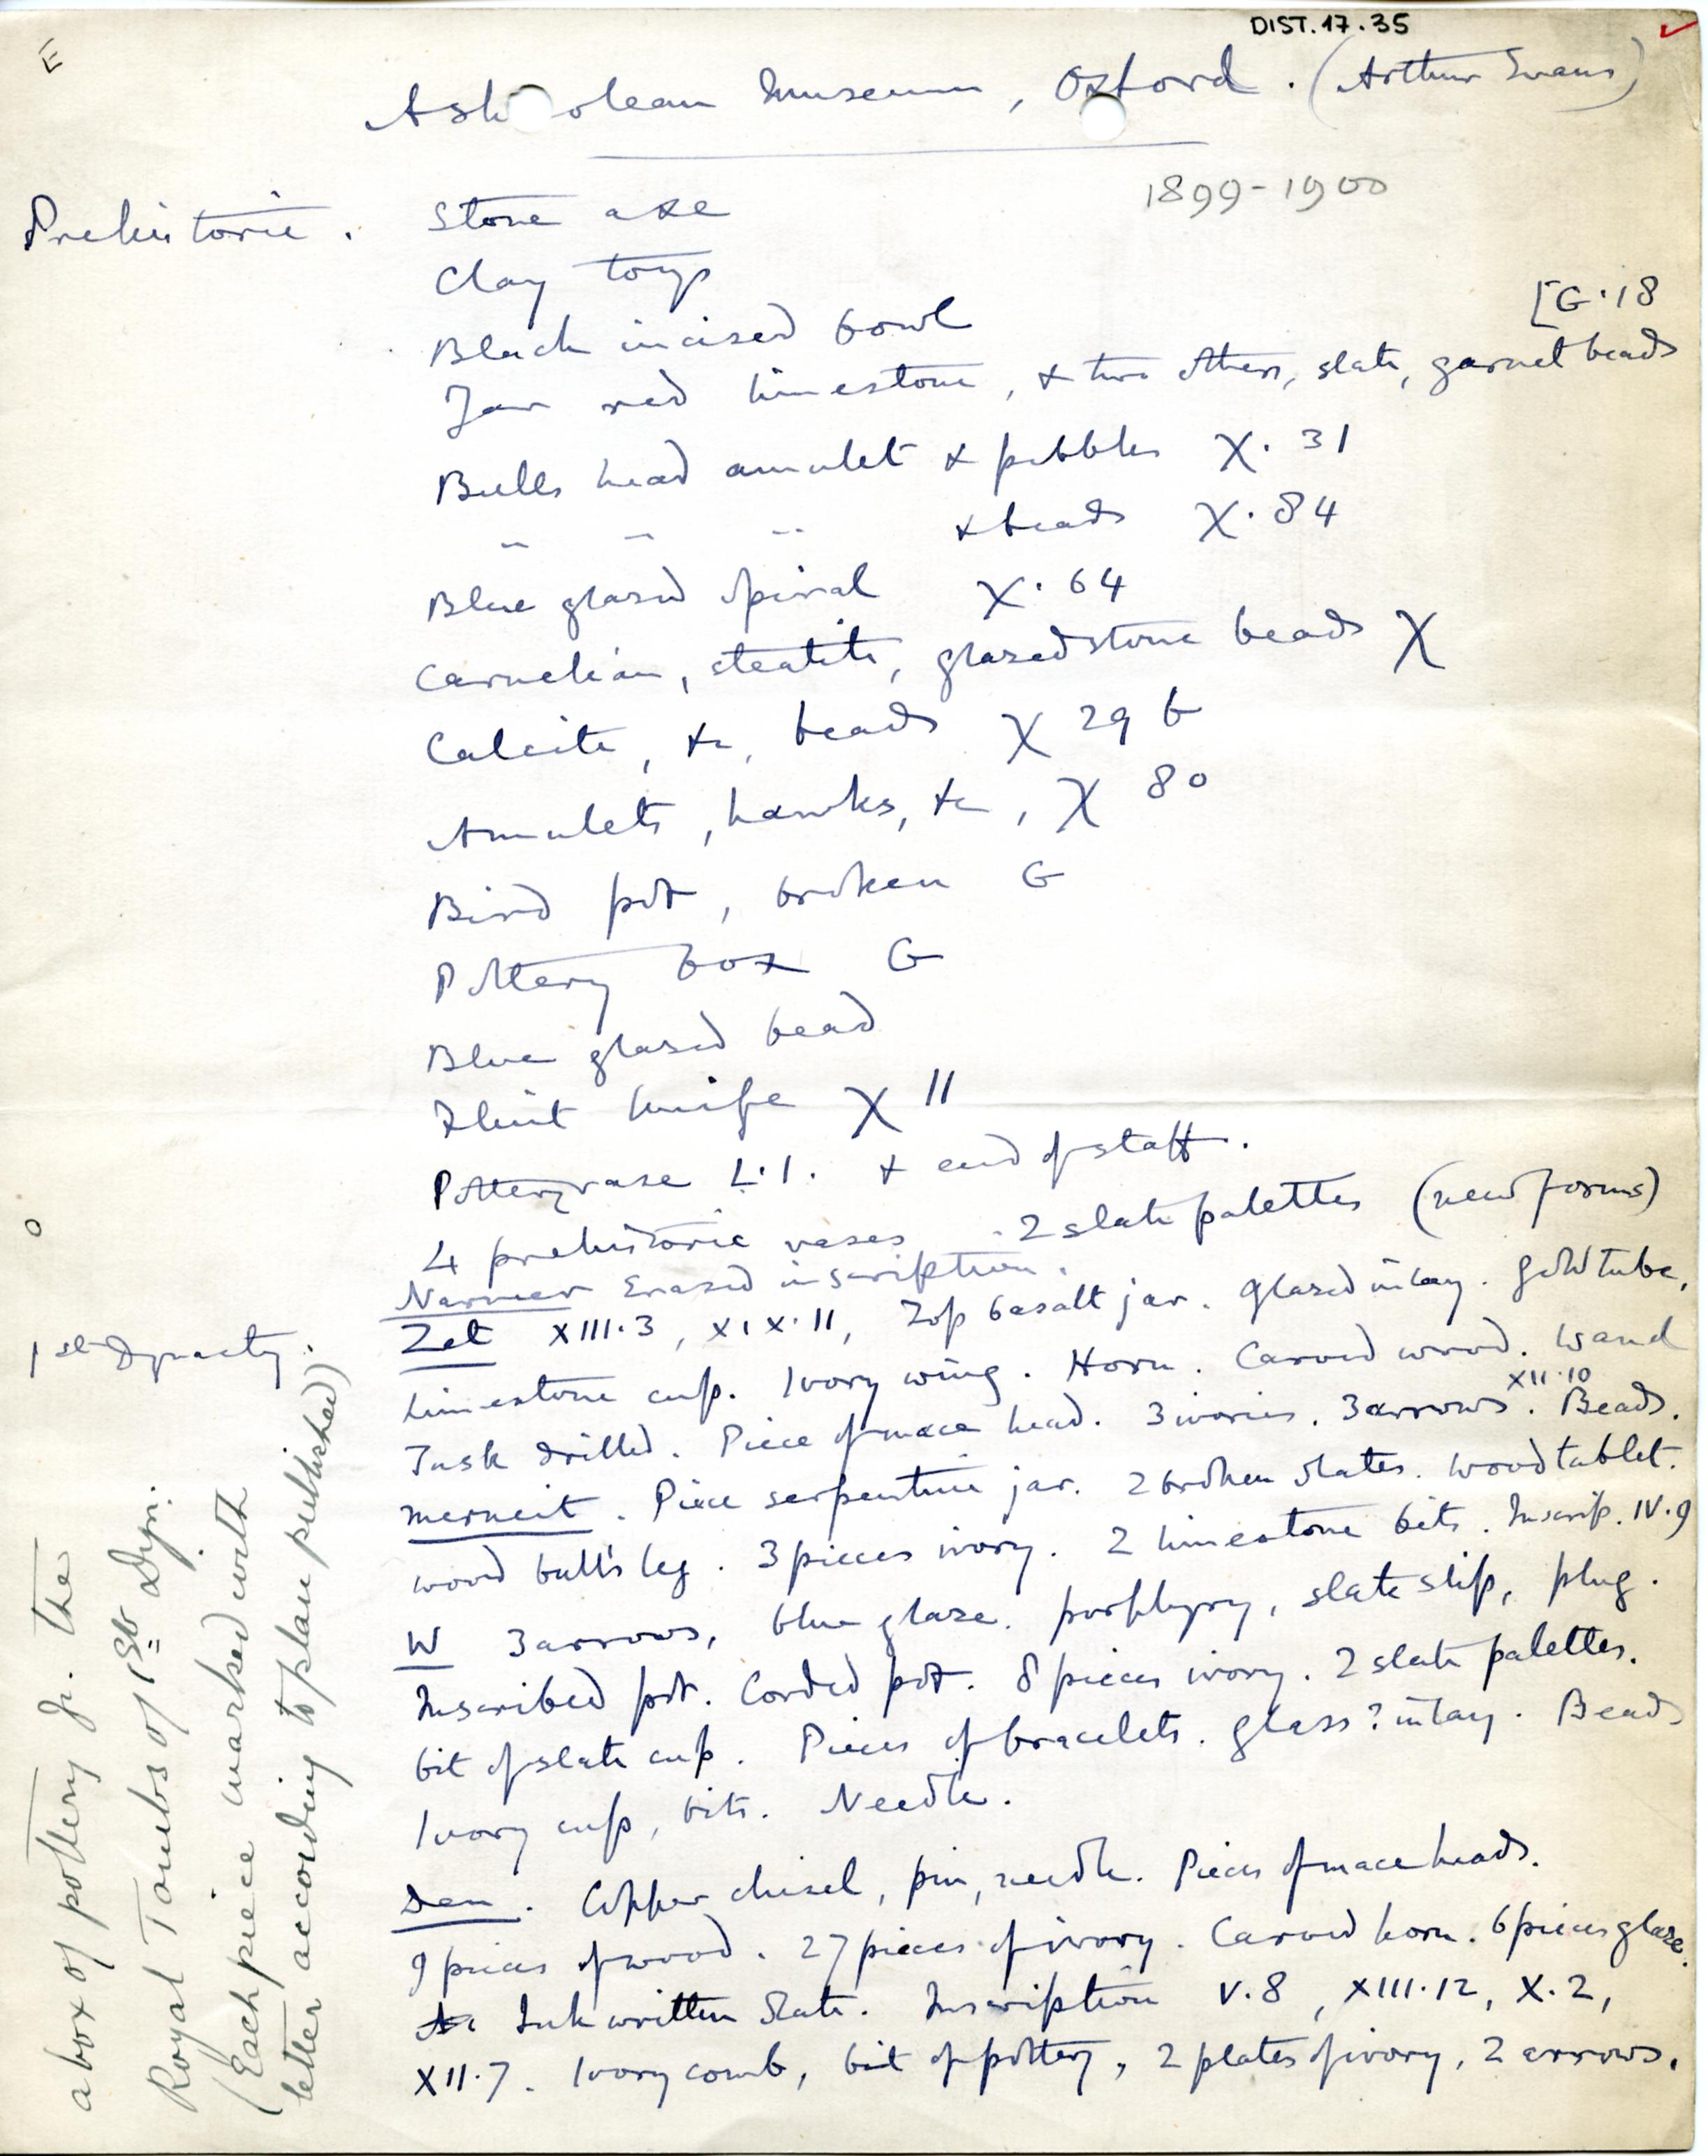 DIST.17.35
E
Ashmolean Museum, Oxford. (Arthur Evans)
1899-1900
Prehistoric. Stone axe
Clay toys
Black incised bowl
[G.18
Jar red limestone, & two others, slate, garnet beads
Bulls head amulet & pebbles χ. 31
" " " & beads χ. 84
Blue glazed spiral χ. 64
Carnelian, steatite, glazed stone beads χ
Calcite, &c, beads χ 29 b
Amulets, hawks, &c, χ 80
Bird pot, broken G
Pottery box G
Blue glazed bead
Flint knife χ 11
Pottery vase L.1. & end of staff.
4 prehistoric vases. 2 slate palettes (new forms)
Narmer Erased inscription.
1st Dynasty. Zet XIII.3, XIX.11, Top basalt jar. Glazed inlay. Gold tube.
Limestone cup. Ivory wing. Horn. Carved wood. Wand
Tusk drilled. Piece of mace head. 3 ivories. 3 arrows XII.10. Beads.
Merneit. Piece serpentine jar. 2 broken slates. Wood tablet.
Wood bull's leg. 3 pieces ivory. 2 limestone bits. Inscrip. IV.9
W 3 arrows, blue glaze. porphyry, slate slip, plug.
Inscribed pot. Corded pot. 8 pieces ivory. 2 slate palettes.
bit of slate cup. Pieces of bracelets. glass? inlay. Beads
Ivory cup, bits. Needle.
Den. Copper chisel, pin, needle. Pieces of mace heads.
9 pieces of wood. 27 pieces of ivory. Carved horn. 6 pieces glaze.
Ink written slate. Inscription V.8, XIII.12, X.2,
XII.7. Ivory comb, bit of pottery, 2 plates of ivory, 2 arrows.
a box of pottery fr. the
Royal Tombs of 1st Dyn.
(Each piece marked with
letter according to plan published)